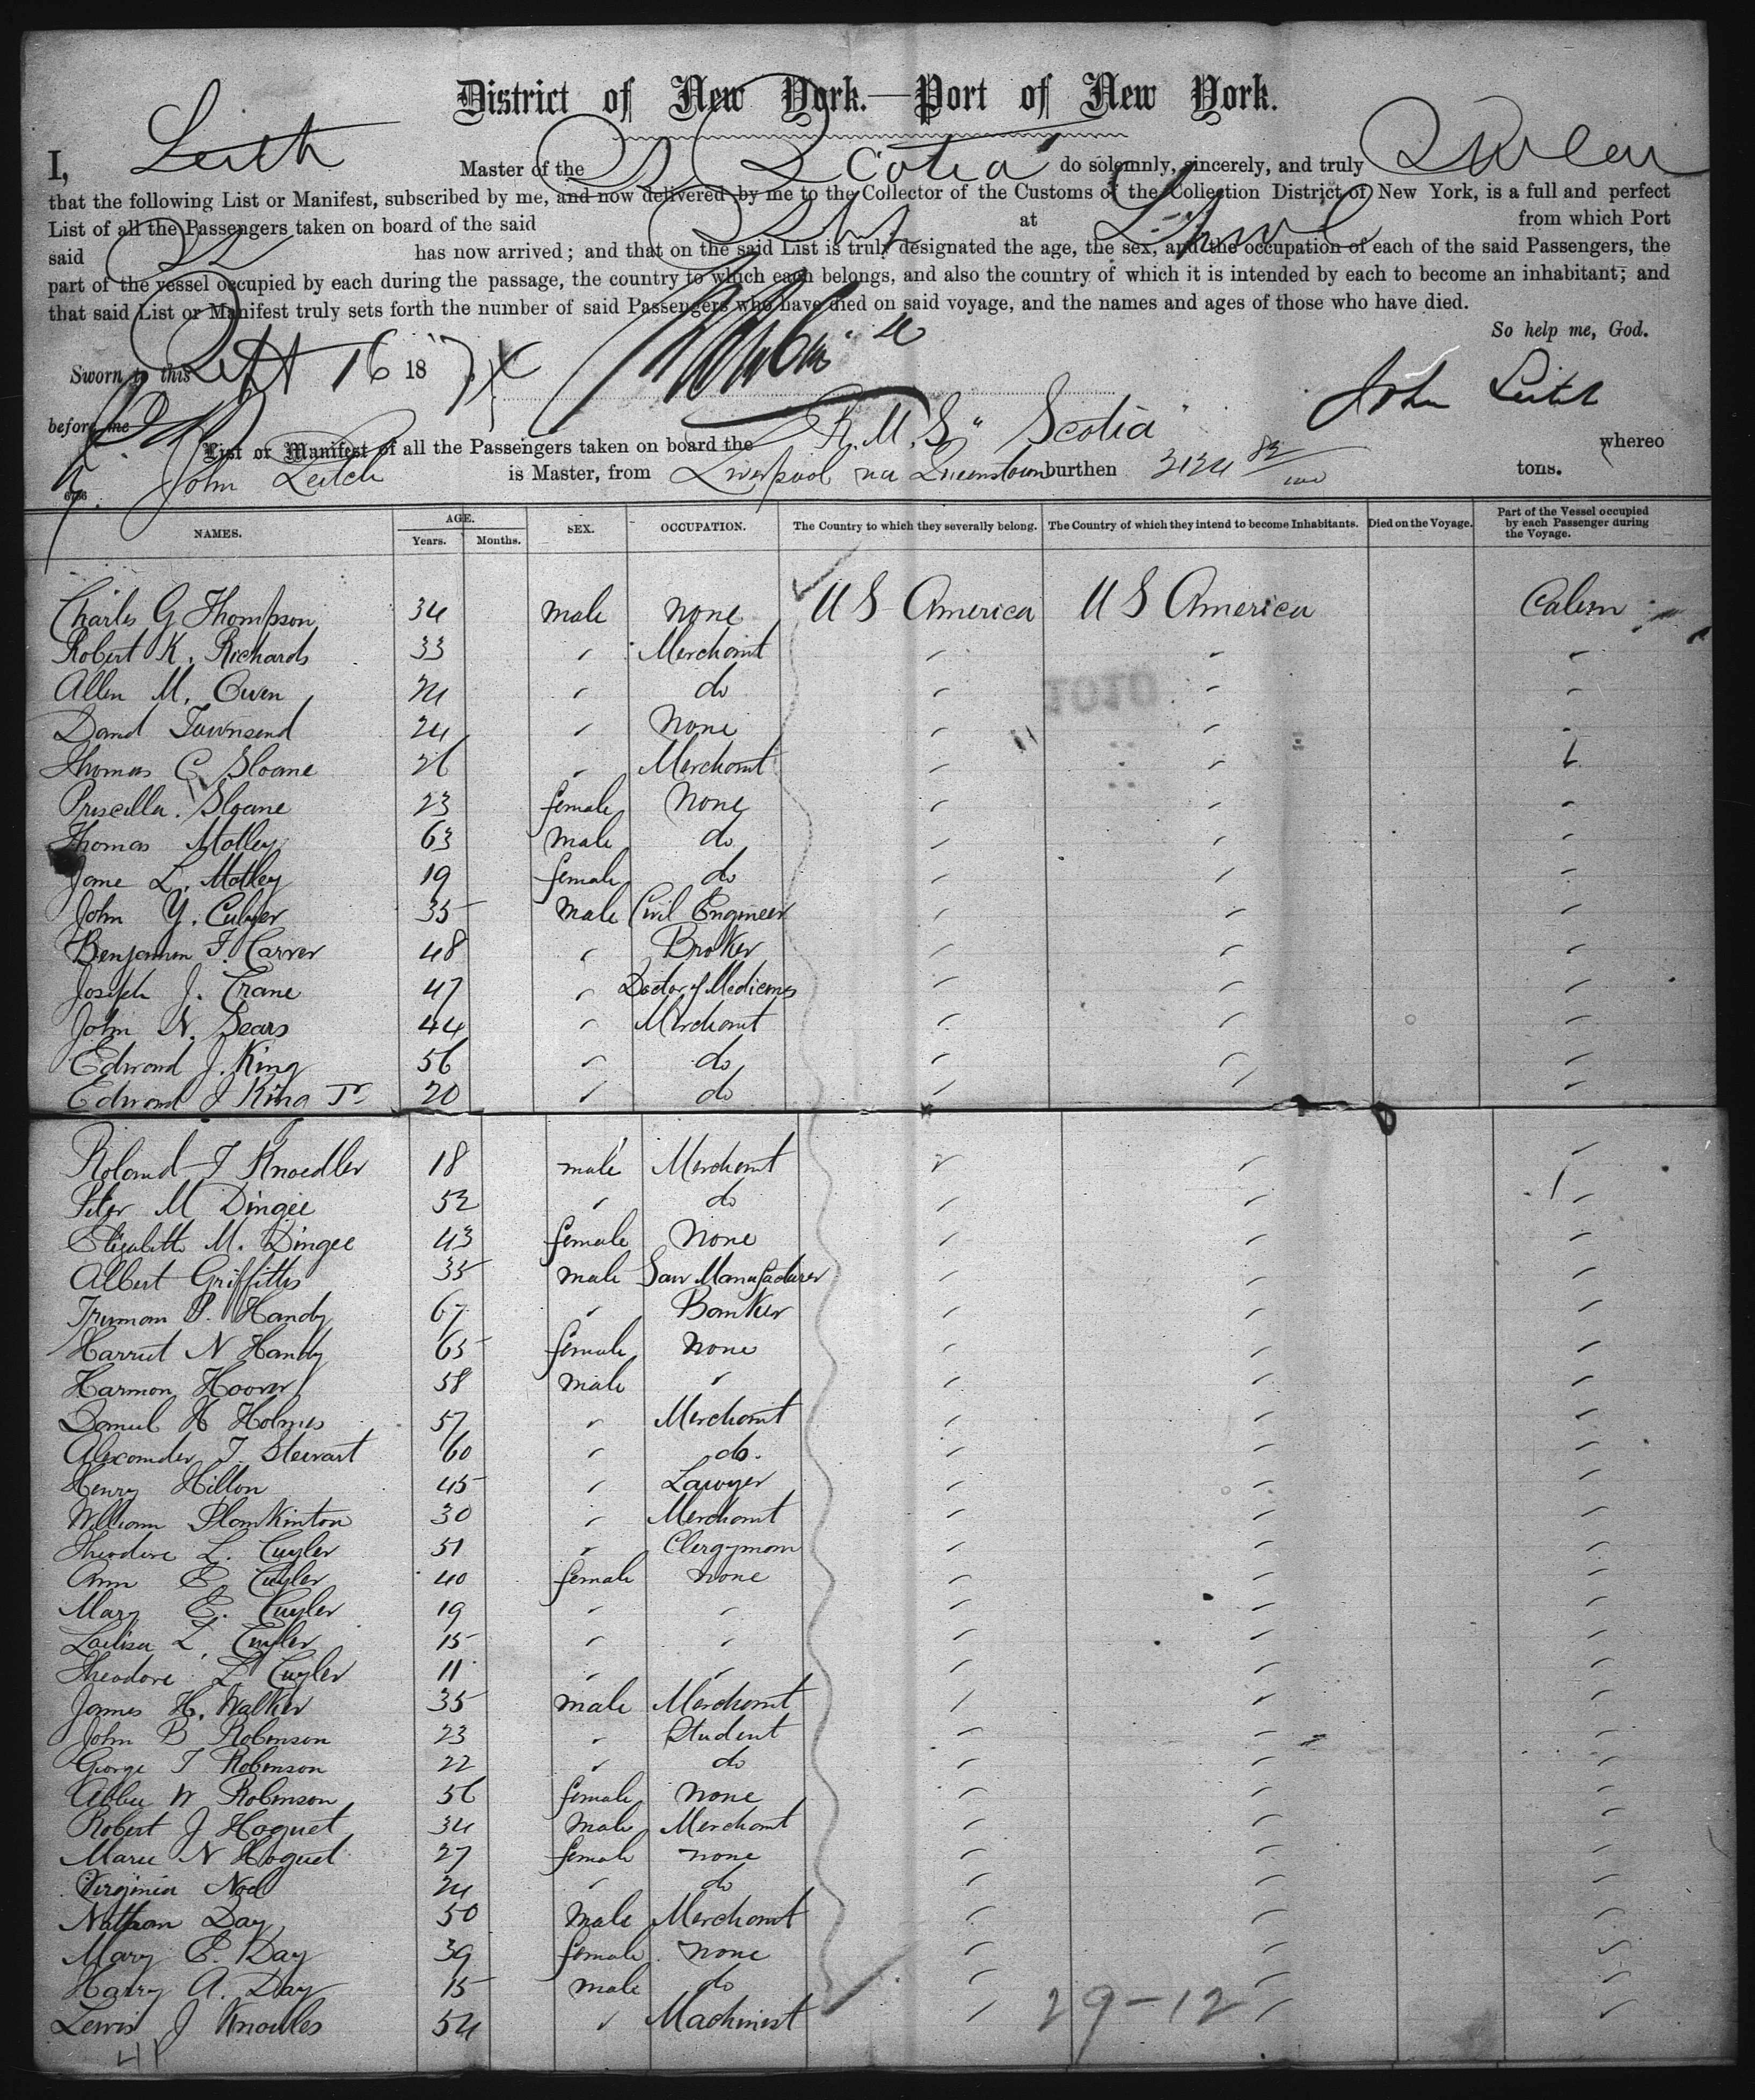 District of New York.—Port of New York.
I, Leitch Master of the SS Scotia do solemnly, sincerely, and truly Swear
that the following List or Manifest, subscribed by me, and now delivered by me to the Collector of the Customs of the Collection District of New York, is a full and perfect
List of all the Passengers taken on board of the said at from which Port
said has now arrived; and that on the said List is truly designated the age, the sex, and the occupation of each of the said Passengers, the
part of the vessel occupied by each during the passage, the country to which each belongs, and also the country of which it is intended by each to become an inhabitant; and
that said List or Manifest truly sets forth the number of said Passengers who have died on said voyage, and the names and ages of those who have died.
So help me, God.
Sworn to this Sept 16 187
before me John Leitch
List or Manifest of all the Passengers taken on board the R.M.S. "Scotia" whereo
John Leitch is Master, from Liverpool via Queenstown burthen 3124 82/100 tons.
NAMES. AGE. Years. Months. SEX. OCCUPATION. The Country to which they severally belong. The Country of which they intend to become Inhabitants. Died on the Voyage. Part of the Vessel occupied by each Passenger during the Voyage.
Charles G Thompson 34 male none U S America U S America Cabin
Robert K. Richards 33 " Merchant " " "
Allen M. Owen 24 " do " " "
David Townsend 24 " None " " "
Thomas C Sloane 26 " Merchant " " "
Priscilla Sloane 23 female None " " "
Thomas Motley 63 male do " " "
Jane L. Motley 19 female do " " "
John Y. Culyer 35 male Civil Engineer " " "
Benjamin F. Carver 48 " Broker " " "
Joseph J. Crane 47 " Doctor of Medicines " " "
John N. Sears 44 " Merchant " " "
Edward J. King 56 " do " " "
Edward J King Jr 20 " do " " "
Roland F Knoedler 18 male Merchant " " "
Peter M Dingee 52 " do " " "
Elizabeth M. Dingee 43 female None " " "
Albert Griffiths 35 male Saw Manufacturer " " "
Truman P. Handy 67 " Banker " " "
Harriet N Handy 65 female none " " "
Harmon Hoover 58 male " " " "
Daniel H Holmes 57 " Merchant " " "
Alexander T. Stewart 60 " do. " " "
Henry Hilton 45 " Lawyer " " "
William Plankinton 30 " Merchant " " "
Theodore L. Cuyler 51 " Clergyman " " "
Ann E Cuyler 40 female none " " "
Mary E. Cuyler 19 " " " " "
Louisa L. Cuyler 15 " " " " "
Theodore L Cuyler 11 " " " " "
James H. Walker 35 male Merchant " " "
John B Robinson 23 " Student " " "
George T Robinson 22 " do " " "
Abbie W Robinson 56 female none " " "
Robert J Hoguet 34 Male Merchant " " "
Marie N Hoguet 27 female none " " "
Virginia Noel 24 " do " " "
Nathan Day 50 Male Merchant " " "
Mary E. Day 39 female none " " "
Harry A. Day 15 male do " " "
Lewis J Knowles 54 " Machinist " " "
41
29-12